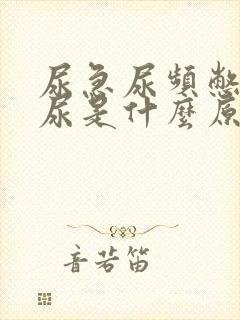 尿急尿頻憋
尿是什麼原
音若笛